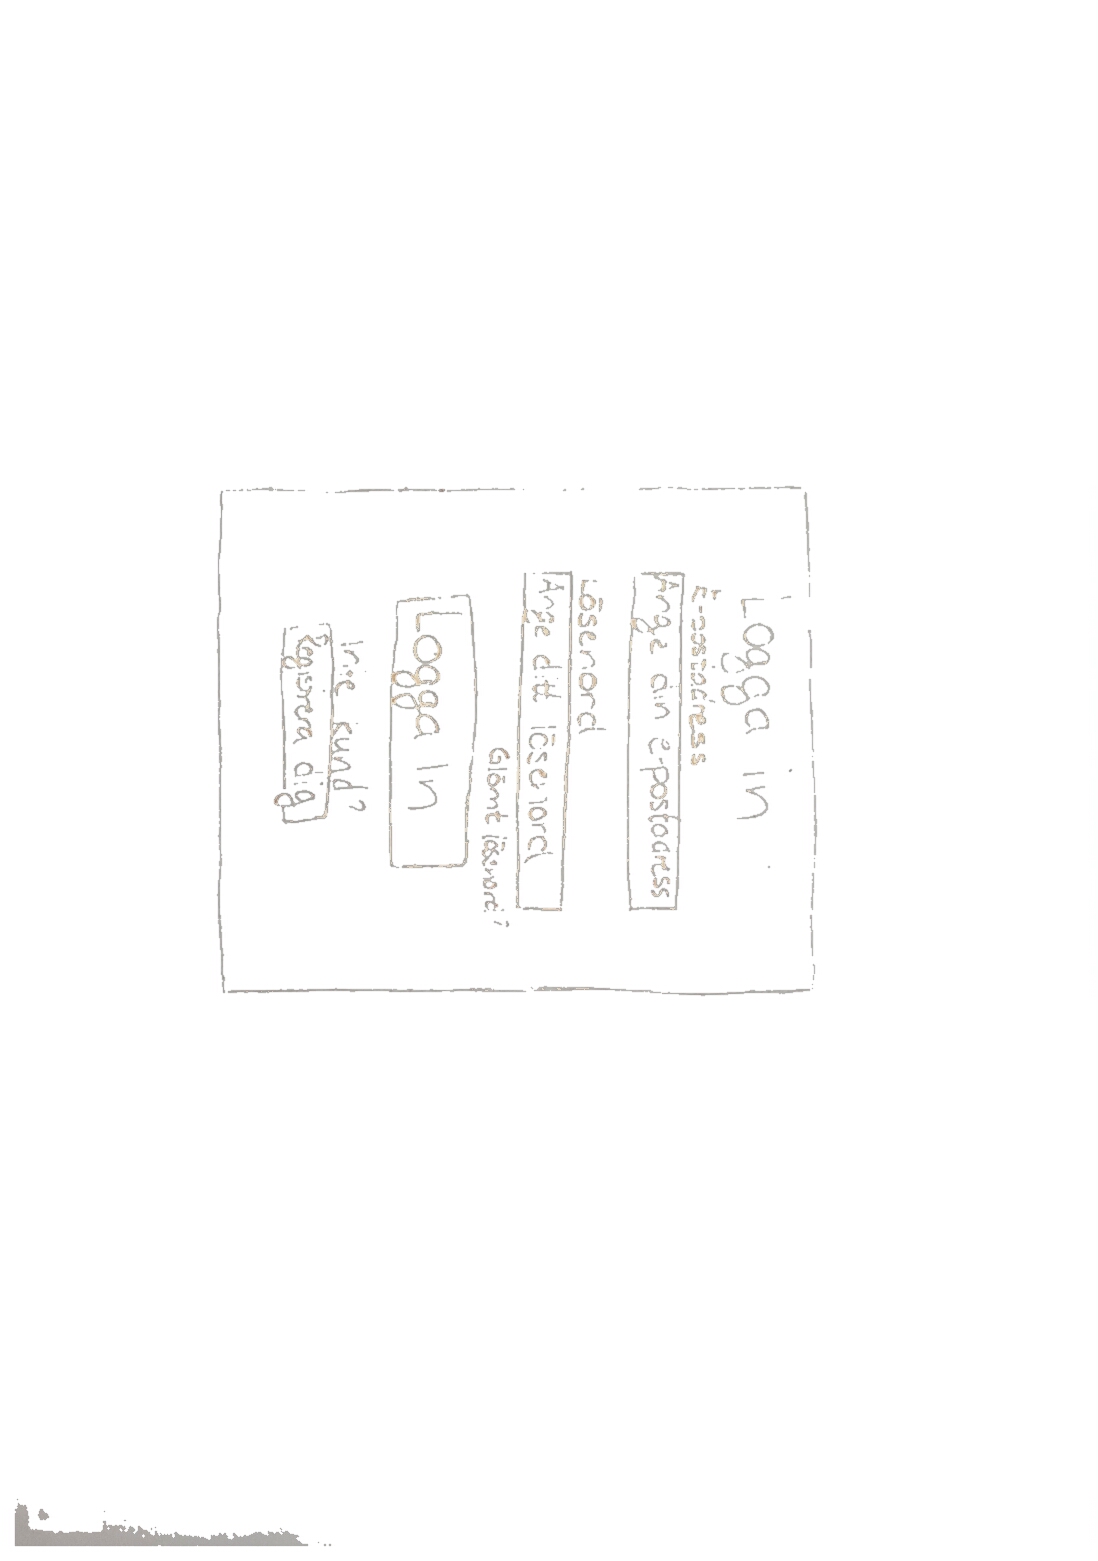 Logga in
E-postadress
Ange din e-postadress
Lösenord
Ange ditt lösenord
Glömt lösenord?
Logga In
Inte kund?
Registrera dig